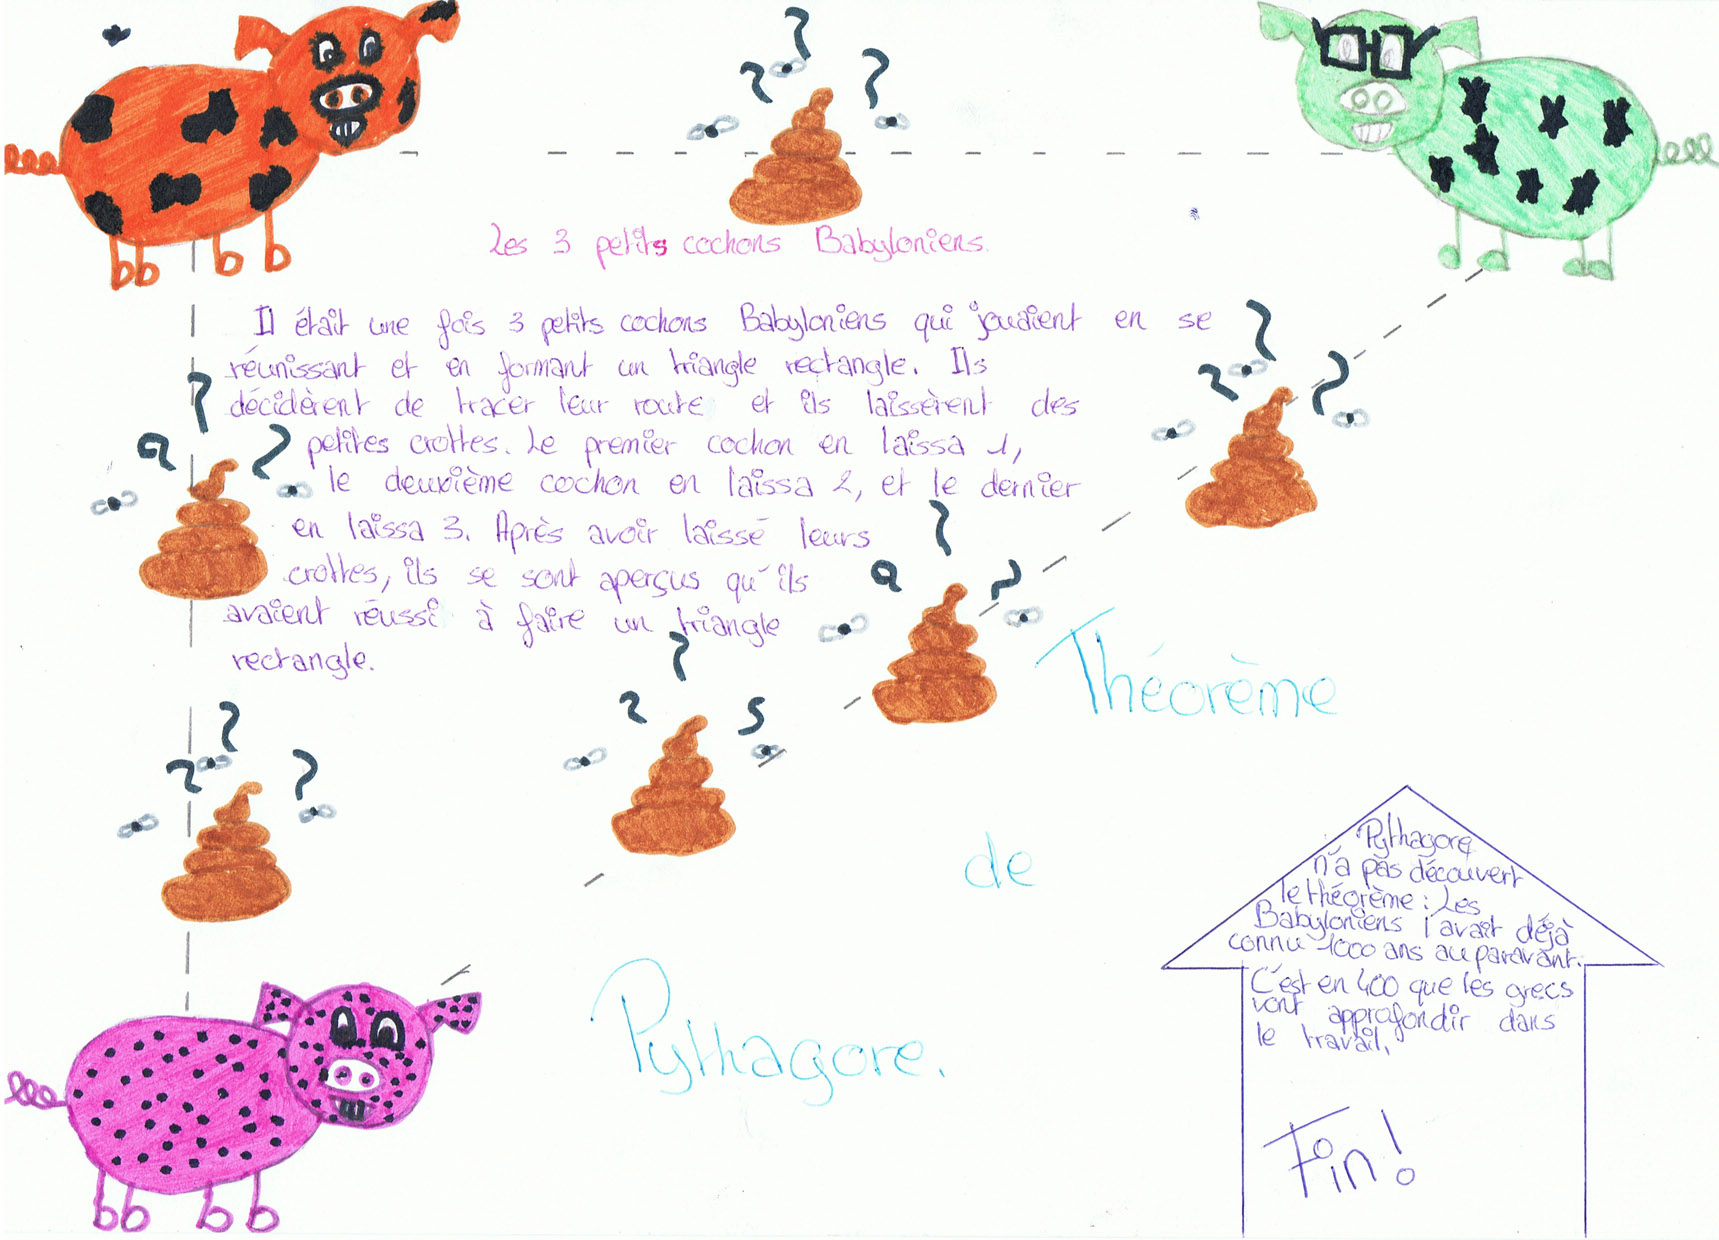 Les 3 petits cochons Babyloniens.
Il était une fois 3 petits cochons Babyloniens qui jouaient en se
réunissant et en formant un triangle rectangle. Ils
décidèrent de tracer leur route et ils laissèrent des
petites crottes. Le premier cochon en laissa 1,
le deuxième cochon en laissa 2, et le dernier
en laissa 3. Après avoir laissé leurs
crottes, ils se sont aperçus qu'ils
avaient réussi à faire un triangle
rectangle.
Théorème
de
Pythagore.
Pythagore
n'a pas découvert
le théorème : Les
Babyloniens l'avait déjà
connu 1000 ans au paravant.
C'est en 400 que les grecs
vont approfondir dans
le travail.
Fin !